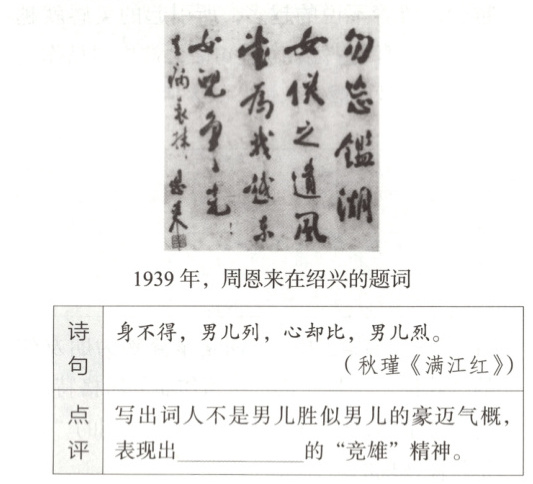 勿忘鑑湖
女俠之遺風
望為我越東
女兒爭光！
恩来
1939 年，周恩来在绍兴的题词
诗句
身不得，男儿列，心却比，男儿烈。
（秋瑾《满江红》）
点评
写出词人不是男儿胜似男儿的豪迈气概，
表现出____________的“竞雄”精神。